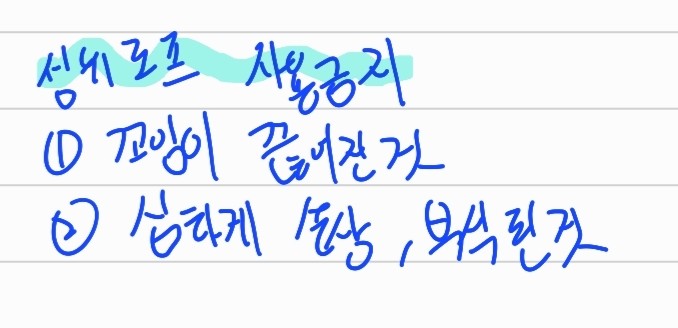 섬유로프 사용금지
① 꼬임이 끊어진 것
② 심하게 손상, 부식된 것